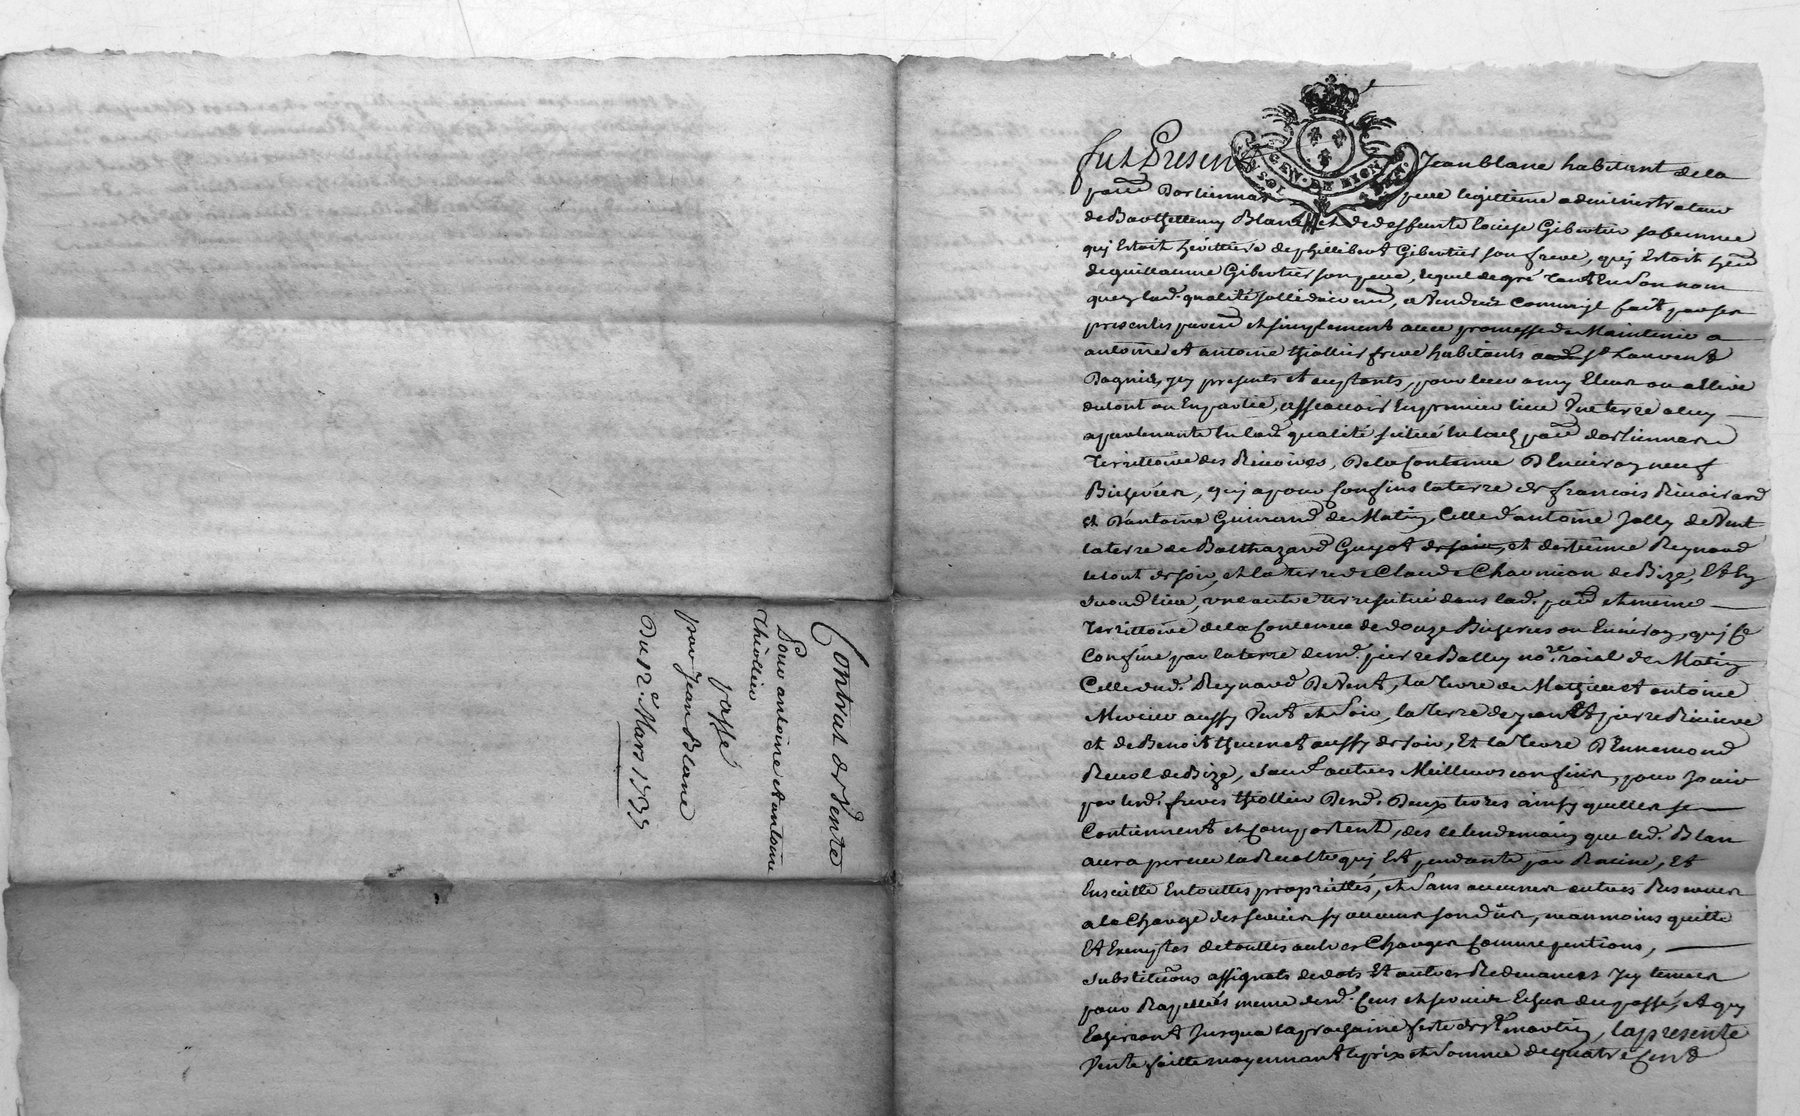 Contrat de Vente
Pour antoine et antoine
Thiollier
passé
par Jean Blanc
Du 12e. Mars 1739
GEN. DE
SOL
fut Present Jean blanc habitant de la
père legittime administrateur
de Barthellemy Blanc, et de deffeunte louise Gibertier sa femme
quj Estoit héritière de phillibert Gibertier son freve, quj Estoit
de guillaume Gibertier son père, lequel de gré tant En son nom
quen lad. qualité a Vendu comme jl fait par ses
presentes purem et simplement avec promesse de Maintenir a
antoine et antoine thiollier freve habitants a St Laurent
Dagnis, jcy presents et aceptants, pour leur amy Eleue ou a Elire
du tout ou En partie, assauoir En premier lieu Vne terre a luy
apartenante En lad. qualité située Enlad. paro dortiennar
Territtoire des Riuoires, De la Contenue D'Enuiron neuf
Bicherées, quj a pour Confins la terre de francois Riuoirard
et D'antoine Guinand de Matin, Celle d'antoine Jolly de Vent
la terre de Balthazard Guyot de soir, et destienne Reynaud
de soir, et la terre de Claude Chaumion de Bize, Et En
second lieu, vne autre terre située dans lad. paro et meme
Territtoire de la Contenue de douze Bicherees ou Enuiron, quj Ce
Confine par la terre de me. pierre Balley nore. roial de Matin
Celle dud. Reynaud De Vent, la Terre de Mathieu et antoine
Mercier aussy Vent et Soir, la Terre de jean Et pierre Riuiere
et de Benoit theuenet aussy de soir, Et la Terre D'Ennemond
Reuol de Bize, sauf autres Meilleurs confins, pour Jouir
par lesd. freres thiollier Desd. Deux terres ainsy quelles se
Contiennent et Comportent, des le lendemain que led. Blan
aura perceu la Recolte quj Est pendante par Racine, Et
Ensuitte En touttes proprietés, et sans aucunes autres Reserues
a la Charge des seruis sy aucuns sont dûs, neanmoins quitte
Et Exemptes de touttes autres Charges Comme pentions,
substitutions assignats de dots Et autres Redeuances jcy tenues
pour Rappellés meme desd. Cens et seruis Echus du passé, et quj
Echeront Jusqua la prochaine feste de St martin, la presente
Vente faitte moyennant le prix et somme de quatre Cent